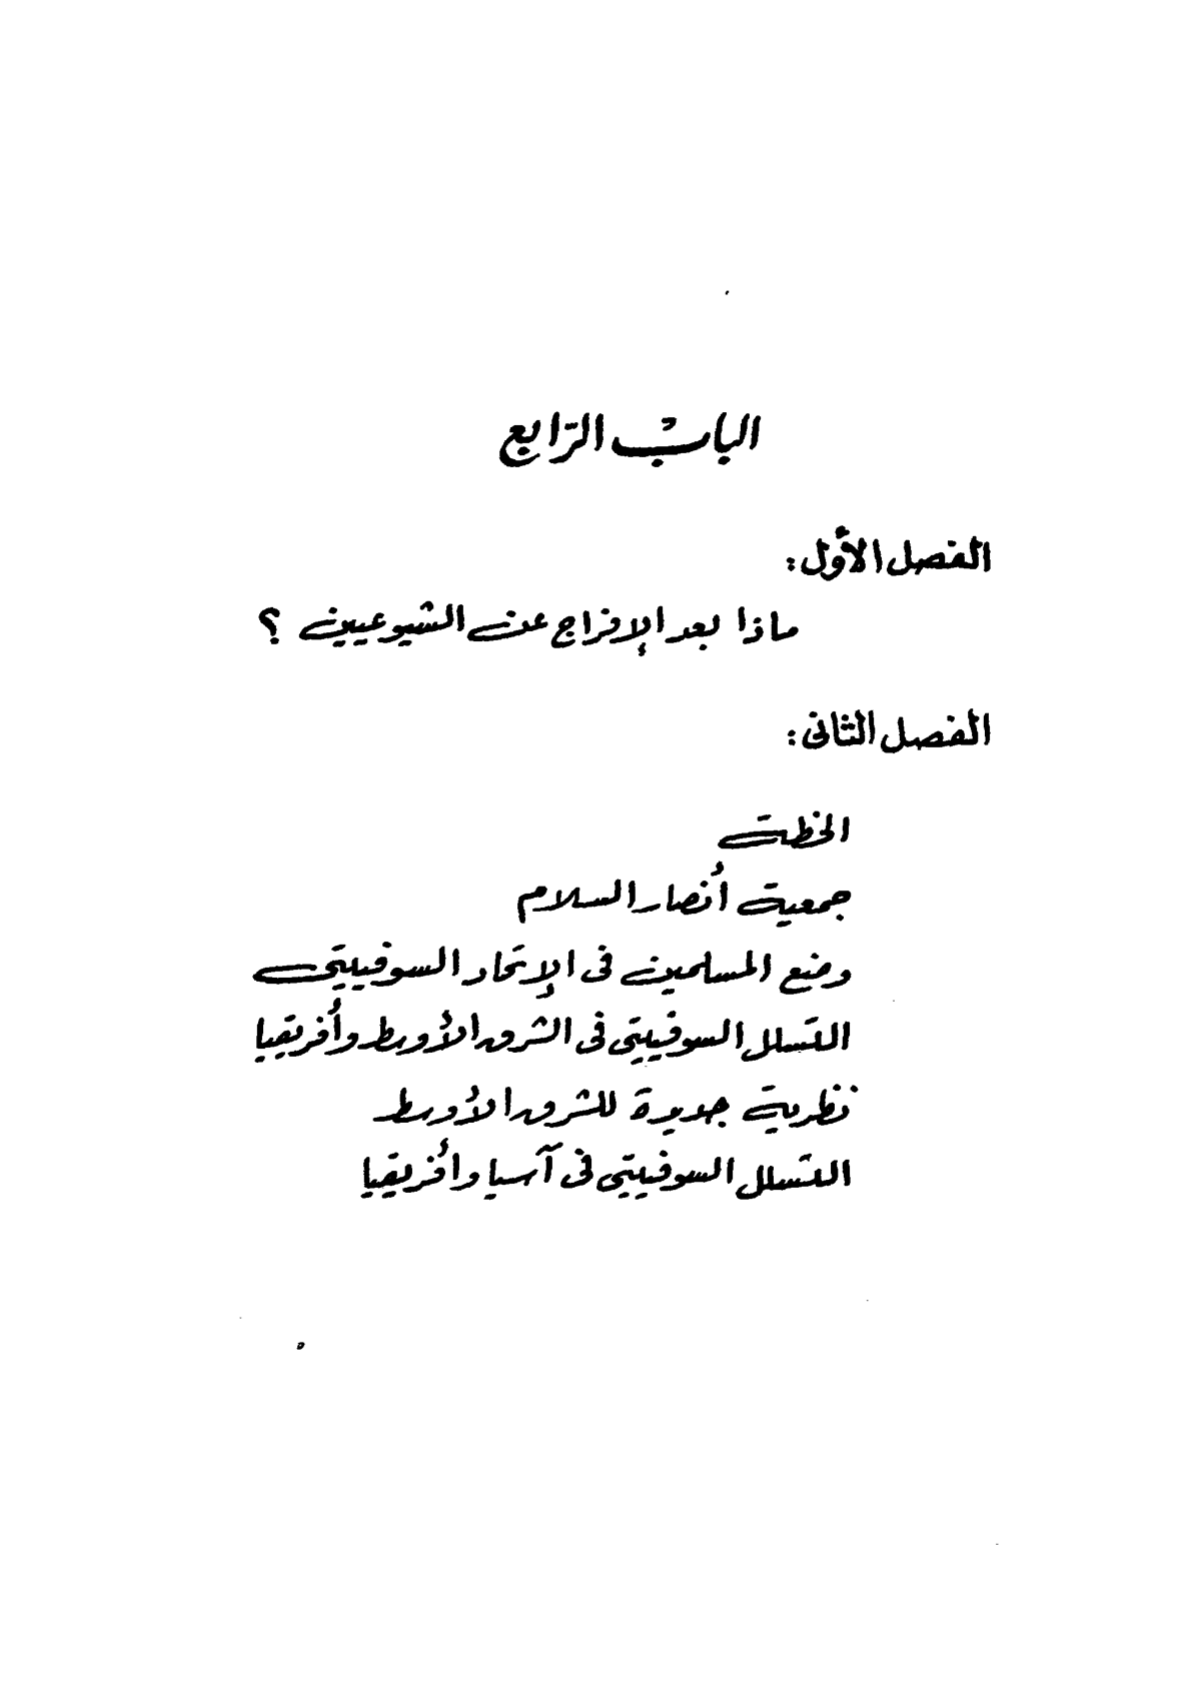 الباب الرّابع
الفصل الأول:
ماذا بعد الإفراج عن الشيوعيين ؟
الفصل الثانى:
الخطة
جمعية أنصار السلام
وضع المسلمين فى الإتحاد السوفييتى
التسلل السوفييتى فى الشرق الأوسط وأفريقيا
نظرية جديدة للشرق الأوسط
التسلل السوفييتى فى آسيا وأفريقيا